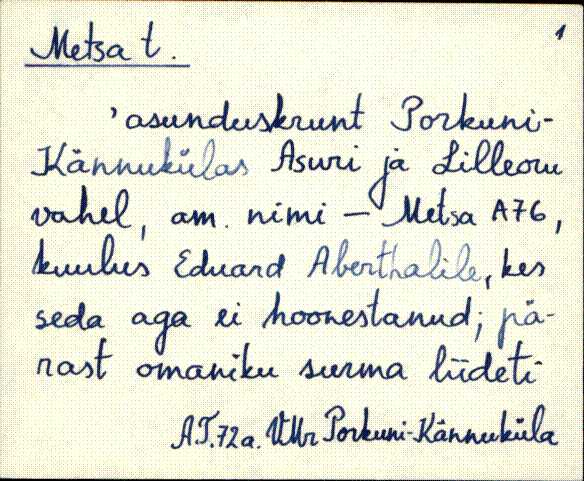 Metsa t.
1
'asunduskrunt Porkuni-
Kännukülas Asuri ja Lilleoru
vahel, am. nimi — Metsa A76,
kuulus Eduard Aberthalile, kes
seda aga ei hoonestanud; pä-
rast omaniku surma liideti
A.T. 72a. VMr Porkuni-Kännuküla